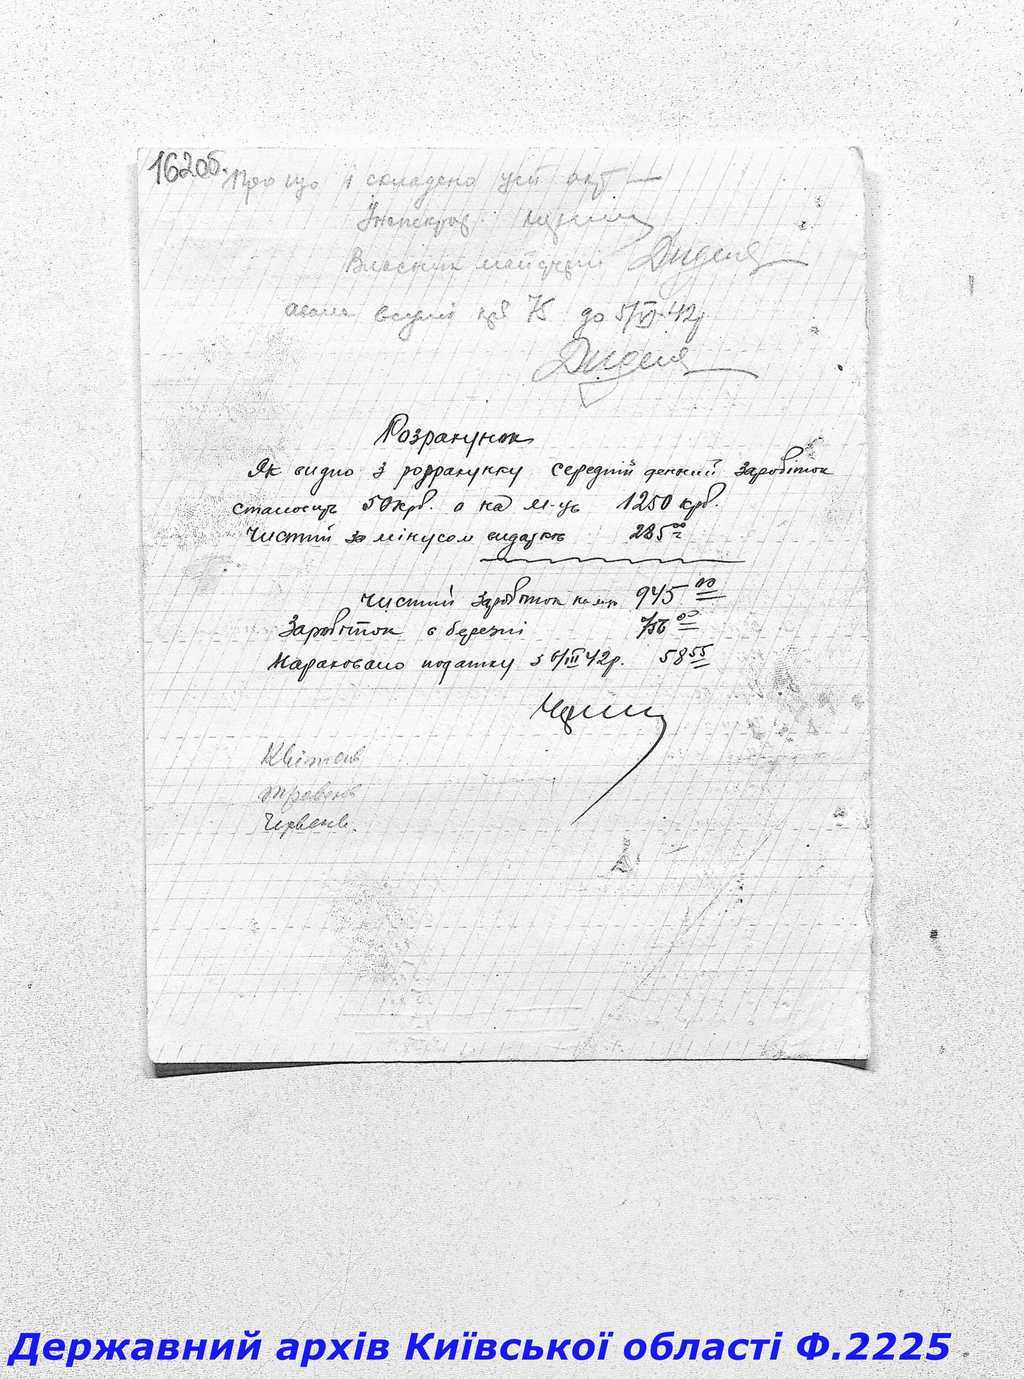 162об.
Про що і складено цей акт
Інспектор
Власник майстерні Дидеия
до 5/VI-42р
Дидеия
Розрахунок
Як видно з розрахунку середній денний заробіток
становить 50 крб. а на м-ць 1250 крб.
Чистий за мінусом видатків 285 00
Чистий заробіток на м-ць 945 00
Заробіток в березні 756 00
Нараховано податку з 6/III 42р. 58 55
Квітень
травень
Червень.
Державний архів Київської області Ф.2225